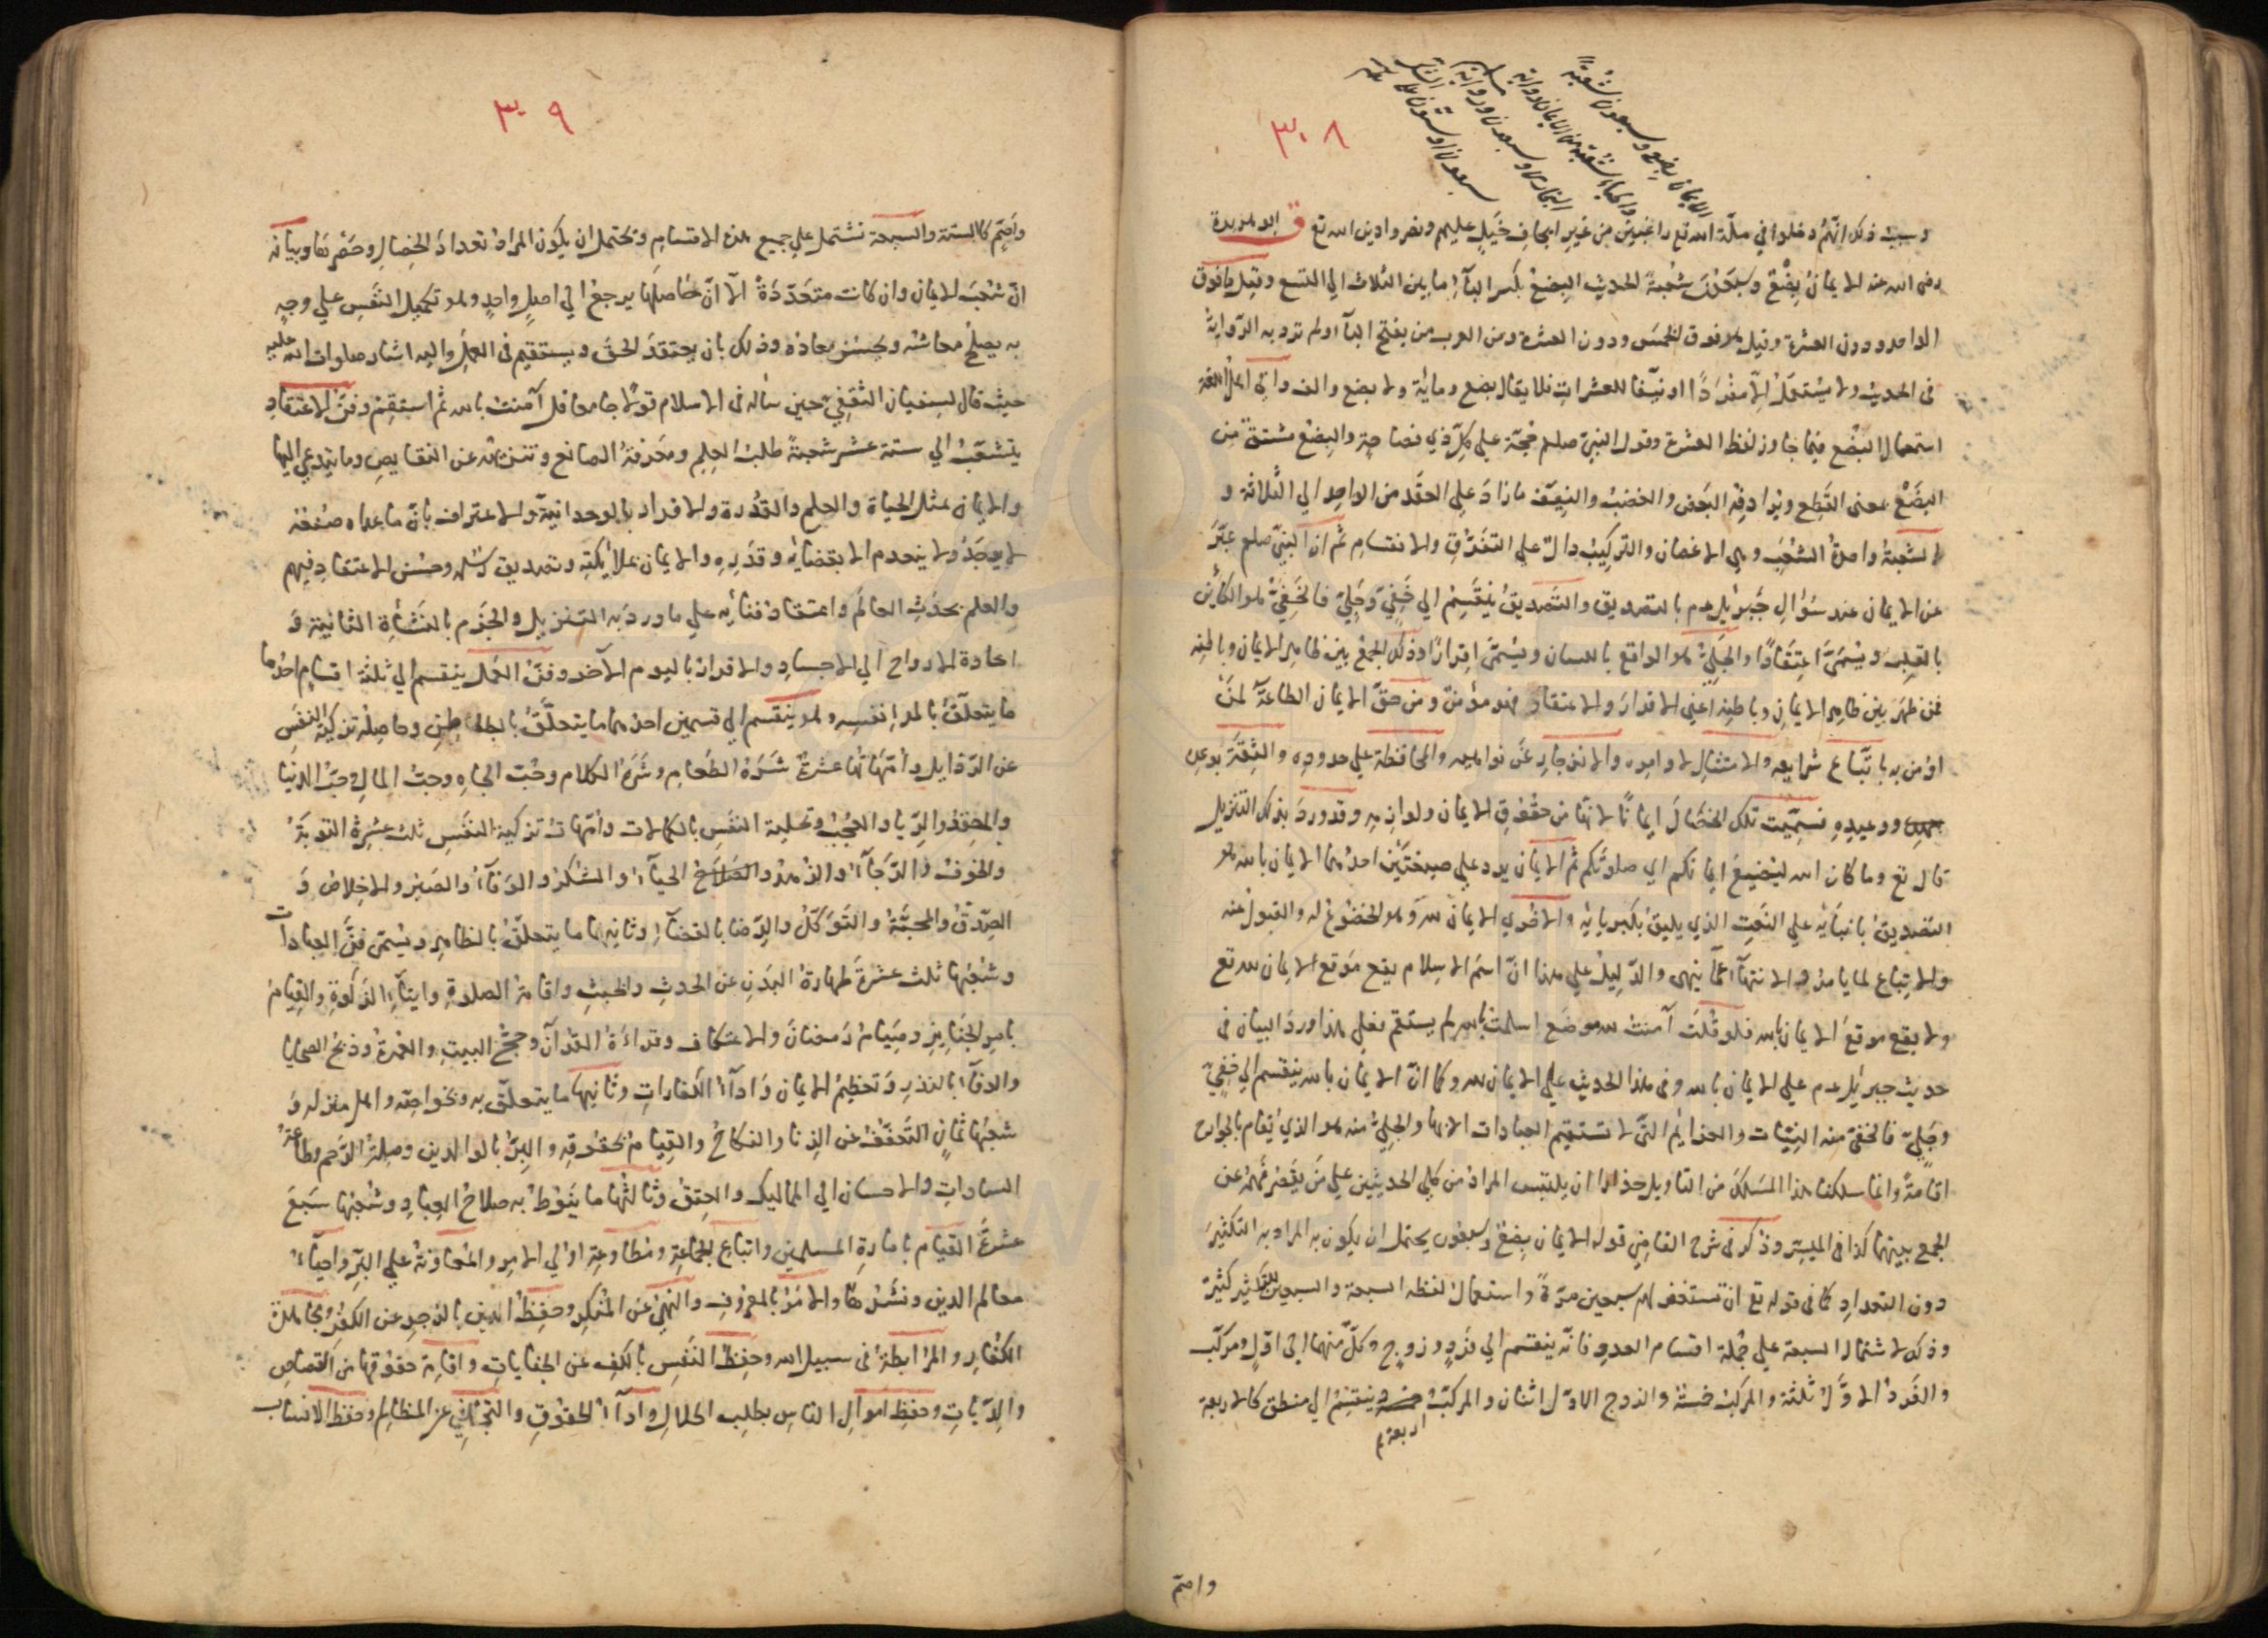 ٣٠٨
الايمان بضع وسبعون شعبة
والحياء شعبة من الايمان رواية
البخاري وسبعون ورواية
سبعون او ستون على
وسبب ذلك انهم دخلوا في ملة الله تع راغبين من غير ايجاف خيل عليهم ونصروا دين الله تع ق ابو هريرة
رضي الله عنه الايمان بضع وسبعون شعبة الحديث البضع بكسر الباء ما بين الثلاث الي التسع وقيل ما فوق
الواحد ودون العشرة وقيل هو فوق الخمس ودون العشرة ومن العرب من يفتح الباء ولم ترد به الرواية
في الحديث ولا يستعمل الا مفردا او نيفا للعشرات فلا يقال بضع ومائة ولا بضع والف واتي اهل اللغة
استعمال البضع فيما جاوز لفظ العشرة وقول النبي صلعم حجة علي كل ذي فصاحة والبضع مشتق من
البضع بمعني القطع ويرادفه البعض والخضب والنيف ما زاد علي العقد من الواحد الي الثلاثة و
الشعبة واحدة الشعب وهي الاغصان والتركيب دال علي التفرق والانقسام ثم ان النبي صلعم عبر
عن الايمان عند سؤال جبرئيل عم بالتصديق والتصديق ينقسم الي خفي وجلي فالخفي هو الكائن
بالقلب ويسمي اعتقادا والجلي هو الواقع باللسان ويسمي اقرارا وذلك الجمع بين ظاهر الايمان وباطنه
فمن ظهر بين ظاهر الايمان وباطنه اعني الاقرار والاعتقاد فهو مؤمن ومن حق الايمان الطاعة لمن
اومن به باتباع شرايعه والامتثال لاوامره والانزجار عن نواهيه والمحافظة علي حدوده والثقة بوعده
ووعيده فسميت تلك الخصال ايمانا لانها من حقوق الايمان ولوازمه وقد ورد بذلك التنزيل
قال تع وما كان الله ليضيع ايمانكم اي صلوتكم ثم الايمان يرد علي صيغتين احدهما الايمان بالله هو
التصديق باثباته علي النعت الذي يليق بكبريائه والاخري الايمان لله وهو الخضوع له والقبول عنه
والاتباع لما يامر به والانتهاء عما ينهي والدليل علي هذا ان اسم الاسلام يقع موقع الايمان لله تع
ولا يقع موقع الايمان بالله فلو قلت آمنت لله موضع اسلمت بالله لم يستقم فعلي هذا ورد البيان في
حديث جبرئيل عم علي الايمان بالله وفي هذا الحديث علي الايمان لله وكما ان الايمان بالله ينقسم الي خفي
وجلي فالخفي منه النيات والعزايم التي لا تستقيم العبادات الا بها والجلي منه هو الذي يقام بالجوارح
اقامة وانما سلكنا هذا المسلك من التاويل حذرا ان يلتبس المراد من كلي الحديثين علي من يقصر فهمه عن
الجمع بينهما كذا في الميسر وذكر في شرح القاضي قوله الايمان بضع وسبعون يحتمل ان يكون به المراد به التكثير
دون التعداد كما في قوله تع ان تستغفر لهم سبعين مرة واستعمال لفظه السبعة والسبعين للتكثير كثيرة
وذلك لاشتمال السبعة علي جملة اقسام العدد فانه ينقسم الي فرد وزوج وكل منهما الي اول ومركب
والفرد الاول ثلثة والمركب خمسة والزوج الاول اثنان والمركب اربعة وينقسم الي منطق كالاربعة
واصم
٣٠٩
واصم كالستة والسبعة تشتمل علي جميع هذه الاقسام ويحتمل ان يكون المراد تعداد الخصال وحصرها وبيانه
ان شعب الايمان وان كانت متعددة الا ان حاصلها يرجع الي اصل واحد وهو تكميل النفس علي وجه
به يصلح معاشه ويحسن معاده وذلك بان يعتقد الحق ويستقيم في العمل واليه اشار صلوات الله عليه
حيث قال لسفيان الثقفي حين ساله في الاسلام قولا جامعا قل آمنت بالله ثم استقم وفن الاعتقاد
يتشعب الي ستة عشر شعبة طلب العلم ومعرفة الصانع وتنزيهه عن النقايص وما يتداعي اليها
والايمان بمثل الحياة والعلم والقدرة والاقرار بالوحدانية والاعتراف بان ما عداه صنعه
لا يوجد ولا ينعدم الا بقضائه وقدره والايمان بملائكته وتصديق رسله وحسن الاعتقاد فيهم
والعلم بحدث العالم واعتقاد فنائه علي ما ورد به التنزيل والجزم بالنشاة الثانية و
اعادة الارواح الي الاجساد والاقرار باليوم الآخر وفن العمل ينقسم الي ثلثة اقسام احدها
ما يتعلق بالمرء نفسه وهو ينقسم الي قسمين احدهما ما يتعلق بالباطن وحاصله تزكية النفس
عن الرذايل وامهاتها عشرة شره الطعام وشره الكلام وحب الجاه وحب المال حب الدنيا
والحقد والريا والعجب وتحلية النفس بالكمالات وامهات تزكية النفس ثلث عشرة التوبة
والخوف والرجاء والزهد والحياء والشكر والوفاء والصبر والاخلاص و
الصدق والمحبة والتوكل والرضا بالقضاء وثانيهما ما يتعلق بالظاهر ويسمي فن العبادات
وشعبها ثلث عشرة طهارة البدن عن الحدث والخبث واقامة الصلوة وايتاء الزكوة والقيام
بامر الجنايز وصيام رمضان والاعتكاف وقراءة القرآن وحج البيت والعمرة وذبح الضحايا
والوفاء بالنذر وتعظيم الايمان واداء الكفارات وثانيها ما يتعلق به وبخواصه واهل منزله و
شعبها ثمان التعفف عن الزنا والنكاح والقيام بحقوقه والبر بالوالدين وصلة الرحم وطاعة
السادات والاحسان الي المماليك والعتق وثالثها ما ينوط به صلاح العباد وشعبها سبع
عشرة القيام بامارة المسلمين واتباع الجماعة ومطاوعة اولي الامر والمعاونة علي البر واحياء
معالم الدين ونشرها والامر بالمعروف والنهي عن المنكر وحفظ الدين بالزجر عن الكفر ومجاهدة
الكفار والمرابطة في سبيل الله وحفظ النفس بالكف عن الجنايات واقامة حقوقها من القصاص
والديات وحفظ اموال الناس بطلب الحلال واداء الحقوق والتجافي عن المظالم وحفظ الانساب